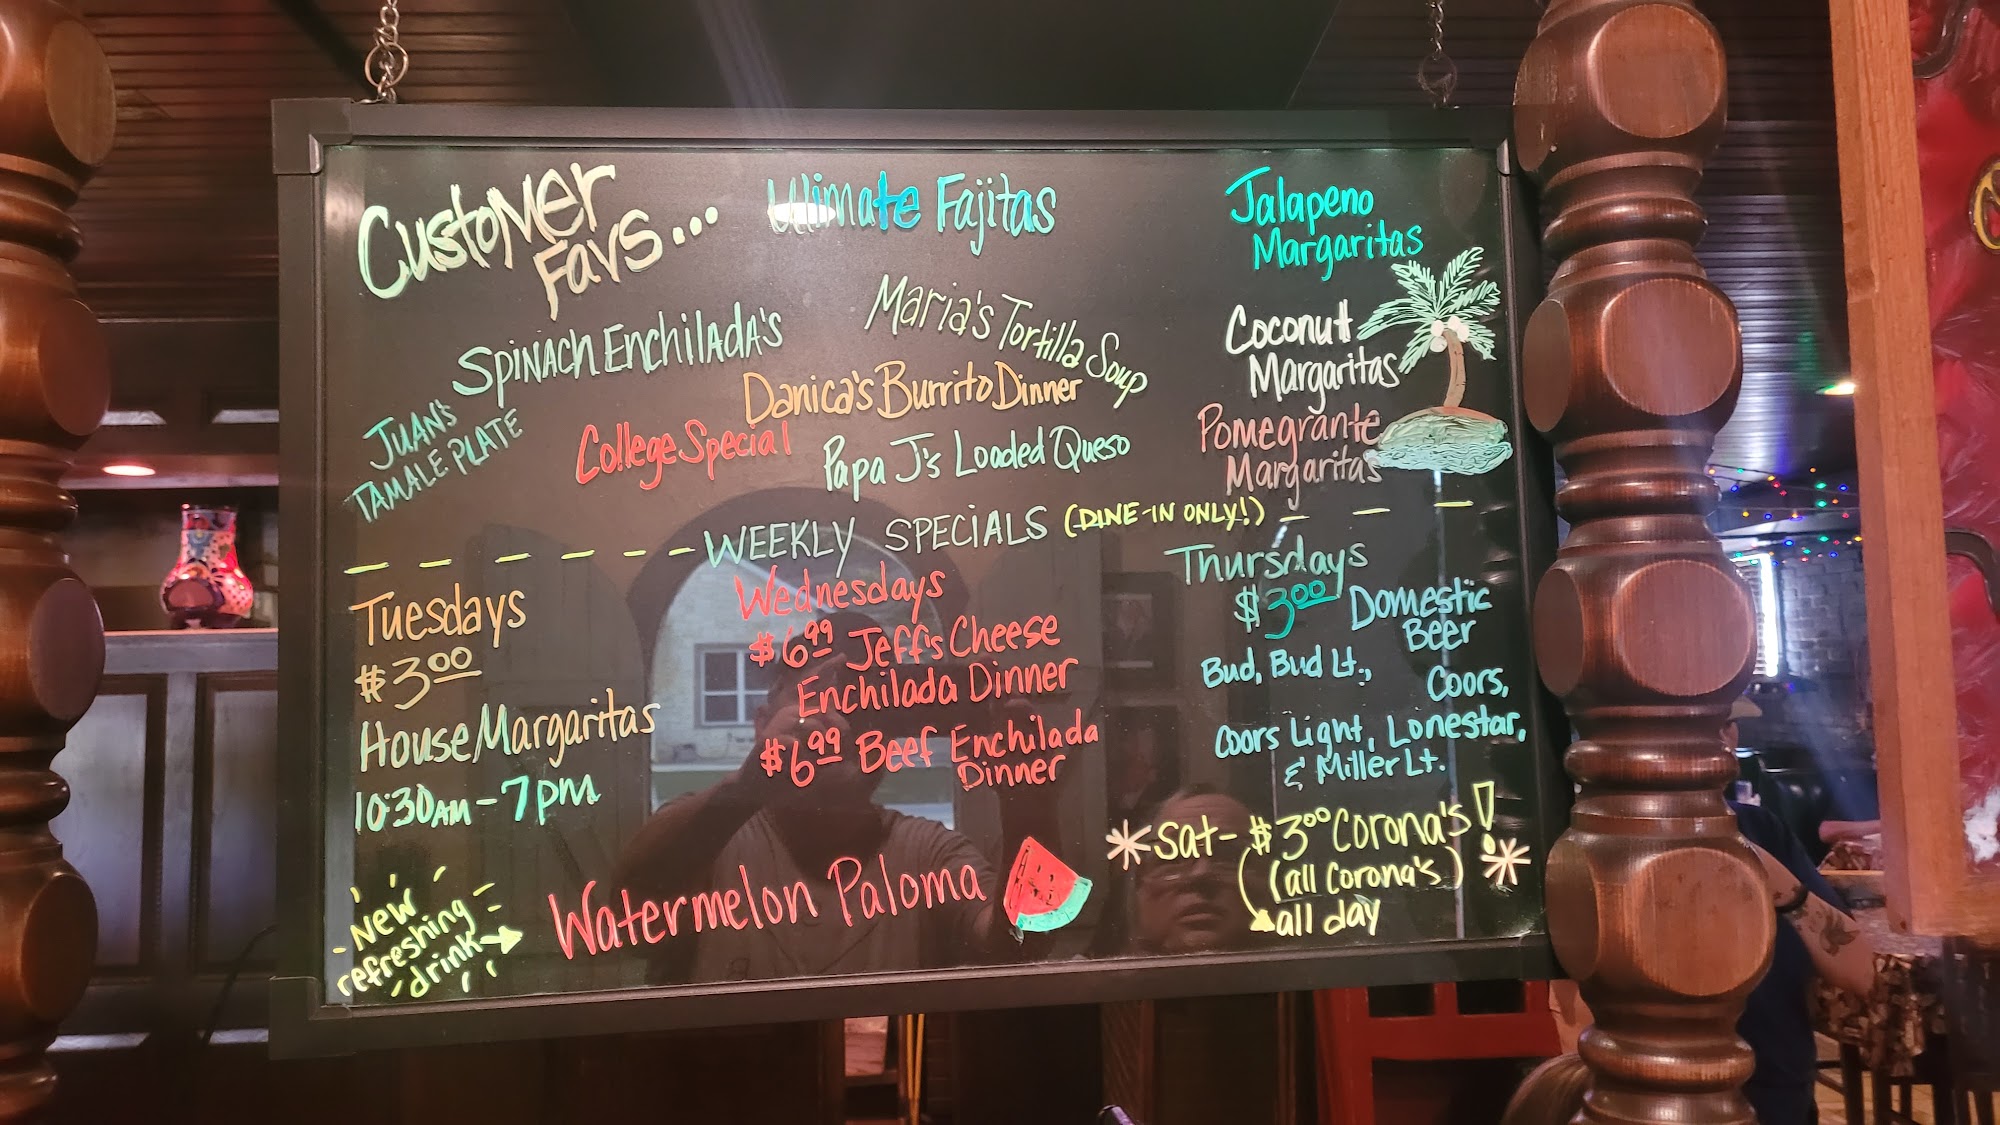 Customer
Favs...
Ulimate Fajitas
Spinach Enchilada's
Maria's Tortilla Soup
Danica's Burrito Dinner
Juan's
Tamale Plate
College Special
Papa J's Loaded Queso
Jalapeno
Margaritas
Coconut
Margaritas
Pomegrante
Margaritas
WEEKLY SPECIALS (DINE-IN ONLY!)
Tuesdays
$3.00
House Margaritas
10:30AM - 7pm
Wednesdays
$6.99 Jeff's Cheese
Enchilada Dinner
$6.99 Beef Enchilada
Dinner
Thursdays
$3.00 Domestic
Beer
Bud, Bud Lt., Coors,
Coors Light, Lonestar,
& Miller Lt.
*Sat- $3.00 Corona's! *
(all Corona's)
all day
- New
refreshing
drink
Watermelon Paloma